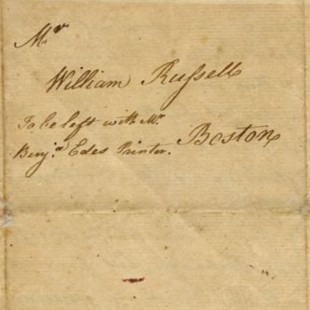 Mr
William Russell
To be left with Mr.
Benj.a Edes Printer. Boston